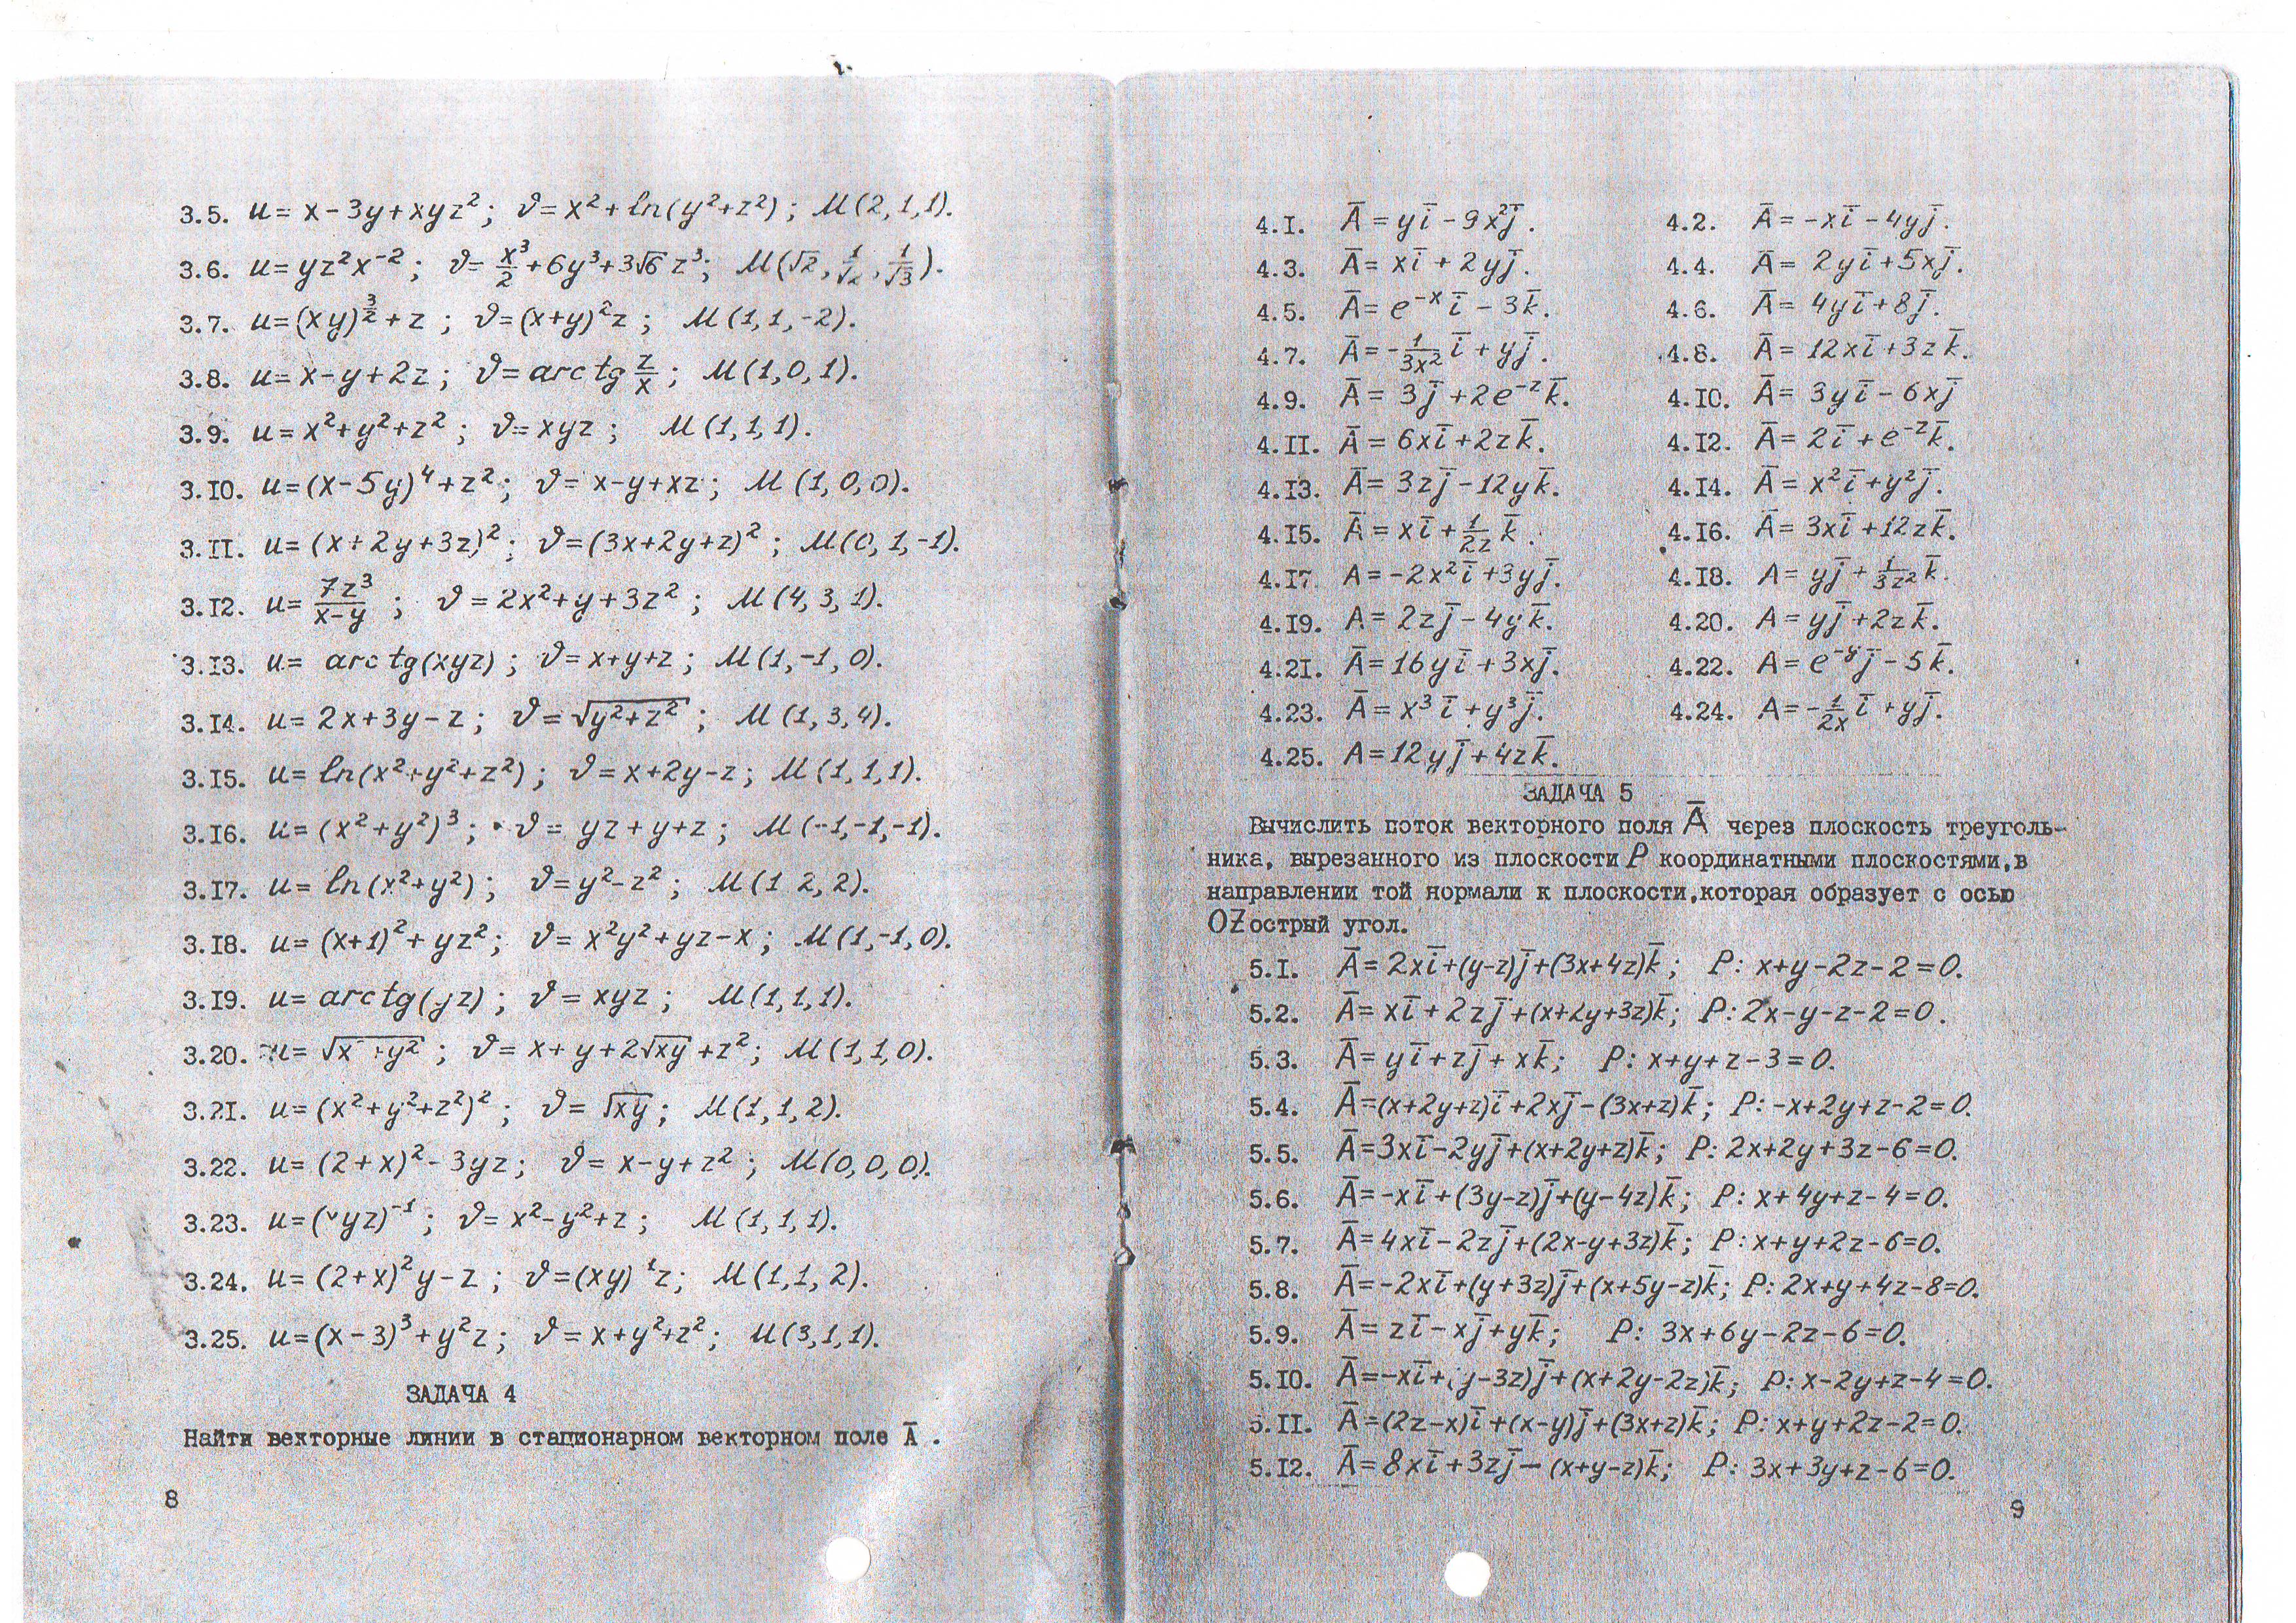 3.5. u = x - 3y + xyz²; ϑ = x² + ln(y² + z²); M(2,1,1).
3.6. u = yz²x⁻²; ϑ = x³/2 + 6y³ + 3√6 z³; M(√2, 1/√2, 1/√3).
3.7. u = (xy)^(3/2) + z; ϑ = (x+y)²z; M(1,1,-2).
3.8. u = x - y + 2z; ϑ = arctg z/x; M(1,0,1).
3.9. u = x² + y² + z²; ϑ = xyz; M(1,1,1).
3.10. u = (x-5y)⁴ + z²; ϑ = x - y + xz; M(1,0,0).
3.11. u = (x+2y+3z)²; ϑ = (3x+2y+z)²; M(0,1,-1).
3.12. u = 7z³/(x-y); ϑ = 2x² + y + 3z²; M(4,3,1).
3.13. u = arctg(xyz); ϑ = x+y+z; M(1,-1,0).
3.14. u = 2x+3y-z; ϑ = √(y²+z²); M(1,3,4).
3.15. u = ln(x²+y²+z²); ϑ = x+2y-z; M(1,1,1).
3.16. u = (x²+y²)³; ϑ = yz+y+z; M(-1,-1,-1).
3.17. u = ln(x²+y²); ϑ = y²-z²; M(1 2,2).
3.18. u = (x+1)² + yz²; ϑ = x²y²+yz-x; M(1,-1,0).
3.19. u = arctg(yz); ϑ = xyz; M(1,1,1).
3.20. u = √(x +y²); ϑ = x+y+2√xy+z²; M(1,1,0).
3.21. u = (x²+y²+z²)²; ϑ = √xy; M(1,1,2).
3.22. u = (2+x)² - 3yz; ϑ = x-y+z²; M(0,0,0).
3.23. u = (xyz)⁻¹; ϑ = x²-y²+z; M(1,1,1).
3.24. u = (2+x)²y-z; ϑ = (xy) ¹z; M(1,1,2).
3.25. u = (x-3)³+y²z; ϑ = x+y²+z²; M(3,1,1).
ЗАДАЧА 4
Найти векторные линии в стационарном векторном поле Ā.
8
4.1. Ā = yī - 9x²j̄. 4.2. Ā = -xī - 4yj̄.
4.3. Ā = xī + 2yj̄. 4.4. Ā = 2yī + 5xj̄.
4.5. Ā = e⁻ˣī - 3k̄. 4.6. Ā = 4yī + 8j̄.
4.7. Ā = -1/(3x²) ī + yj̄. 4.8. Ā = 12xī + 3zk̄.
4.9. Ā = 3j̄ + 2e⁻ᶻk̄. 4.10. Ā = 3yī - 6xj̄
4.11. Ā = 6xī + 2zk̄. 4.12. Ā = 2ī + e⁻ᶻk̄.
4.13. Ā = 3zj̄ - 12yk̄. 4.14. Ā = x²ī + y²j̄.
4.15. Ā = xī + 1/(2z) k̄. 4.16. Ā = 3xī + 12zk̄.
4.17. A = -2x²ī + 3yj̄. 4.18. A = yj̄ + 1/(3z²) k̄.
4.19. A = 2zj̄ - 4yk̄. 4.20. A = yj̄ + 2zk̄.
4.21. Ā = 16yī + 3xj̄. 4.22. A = e⁻ʸj̄ - 5k̄.
4.23. Ā = x³ī + y³j̄. 4.24. A = -1/(2x) ī + yj̄.
4.25. A = 12yj̄ + 4zk̄.
ЗАДАЧА 5
Вычислить поток векторного поля Ā через плоскость треуголь-
ника, вырезанного из плоскости P координатными плоскостями, в
направлении той нормали к плоскости, которая образует с осью
OZ острый угол.
5.1. Ā = 2xī+(y-z)j̄+(3x+4z)k̄; P: x+y-2z-2=0.
5.2. Ā = xī+2zj̄+(x+2y+3z)k̄; P: 2x-y-z-2=0.
5.3. Ā = yī+zj̄+xk̄; P: x+y+z-3=0.
5.4. Ā=(x+2y+z)ī+2xj̄-(3x+z)k̄; P: -x+2y+z-2=0.
5.5. Ā=3xī-2yj̄+(x+2y+z)k̄; P: 2x+2y+3z-6=0.
5.6. Ā=-xī+(3y-z)j̄+(y-4z)k̄; P: x+4y+z-4=0.
5.7. Ā=4xī-2zj̄+(2x-y+3z)k̄; P: x+y+2z-6=0.
5.8. Ā=-2xī+(y+3z)j̄+(x+5y-z)k̄; P: 2x+y+4z-8=0.
5.9. Ā = zī-xj̄+yk̄; P: 3x+6y-2z-6=0.
5.10. Ā=-xī+(y-3z)j̄+(x+2y-2z)k̄; P: x-2y+z-4=0.
5.11. Ā=(2z-x)ī+(x-y)j̄+(3x+z)k̄; P: x+y+2z-2=0.
5.12. Ā=8xī+3zj̄-(x+y-z)k̄; P: 3x+3y+z-6=0.
9